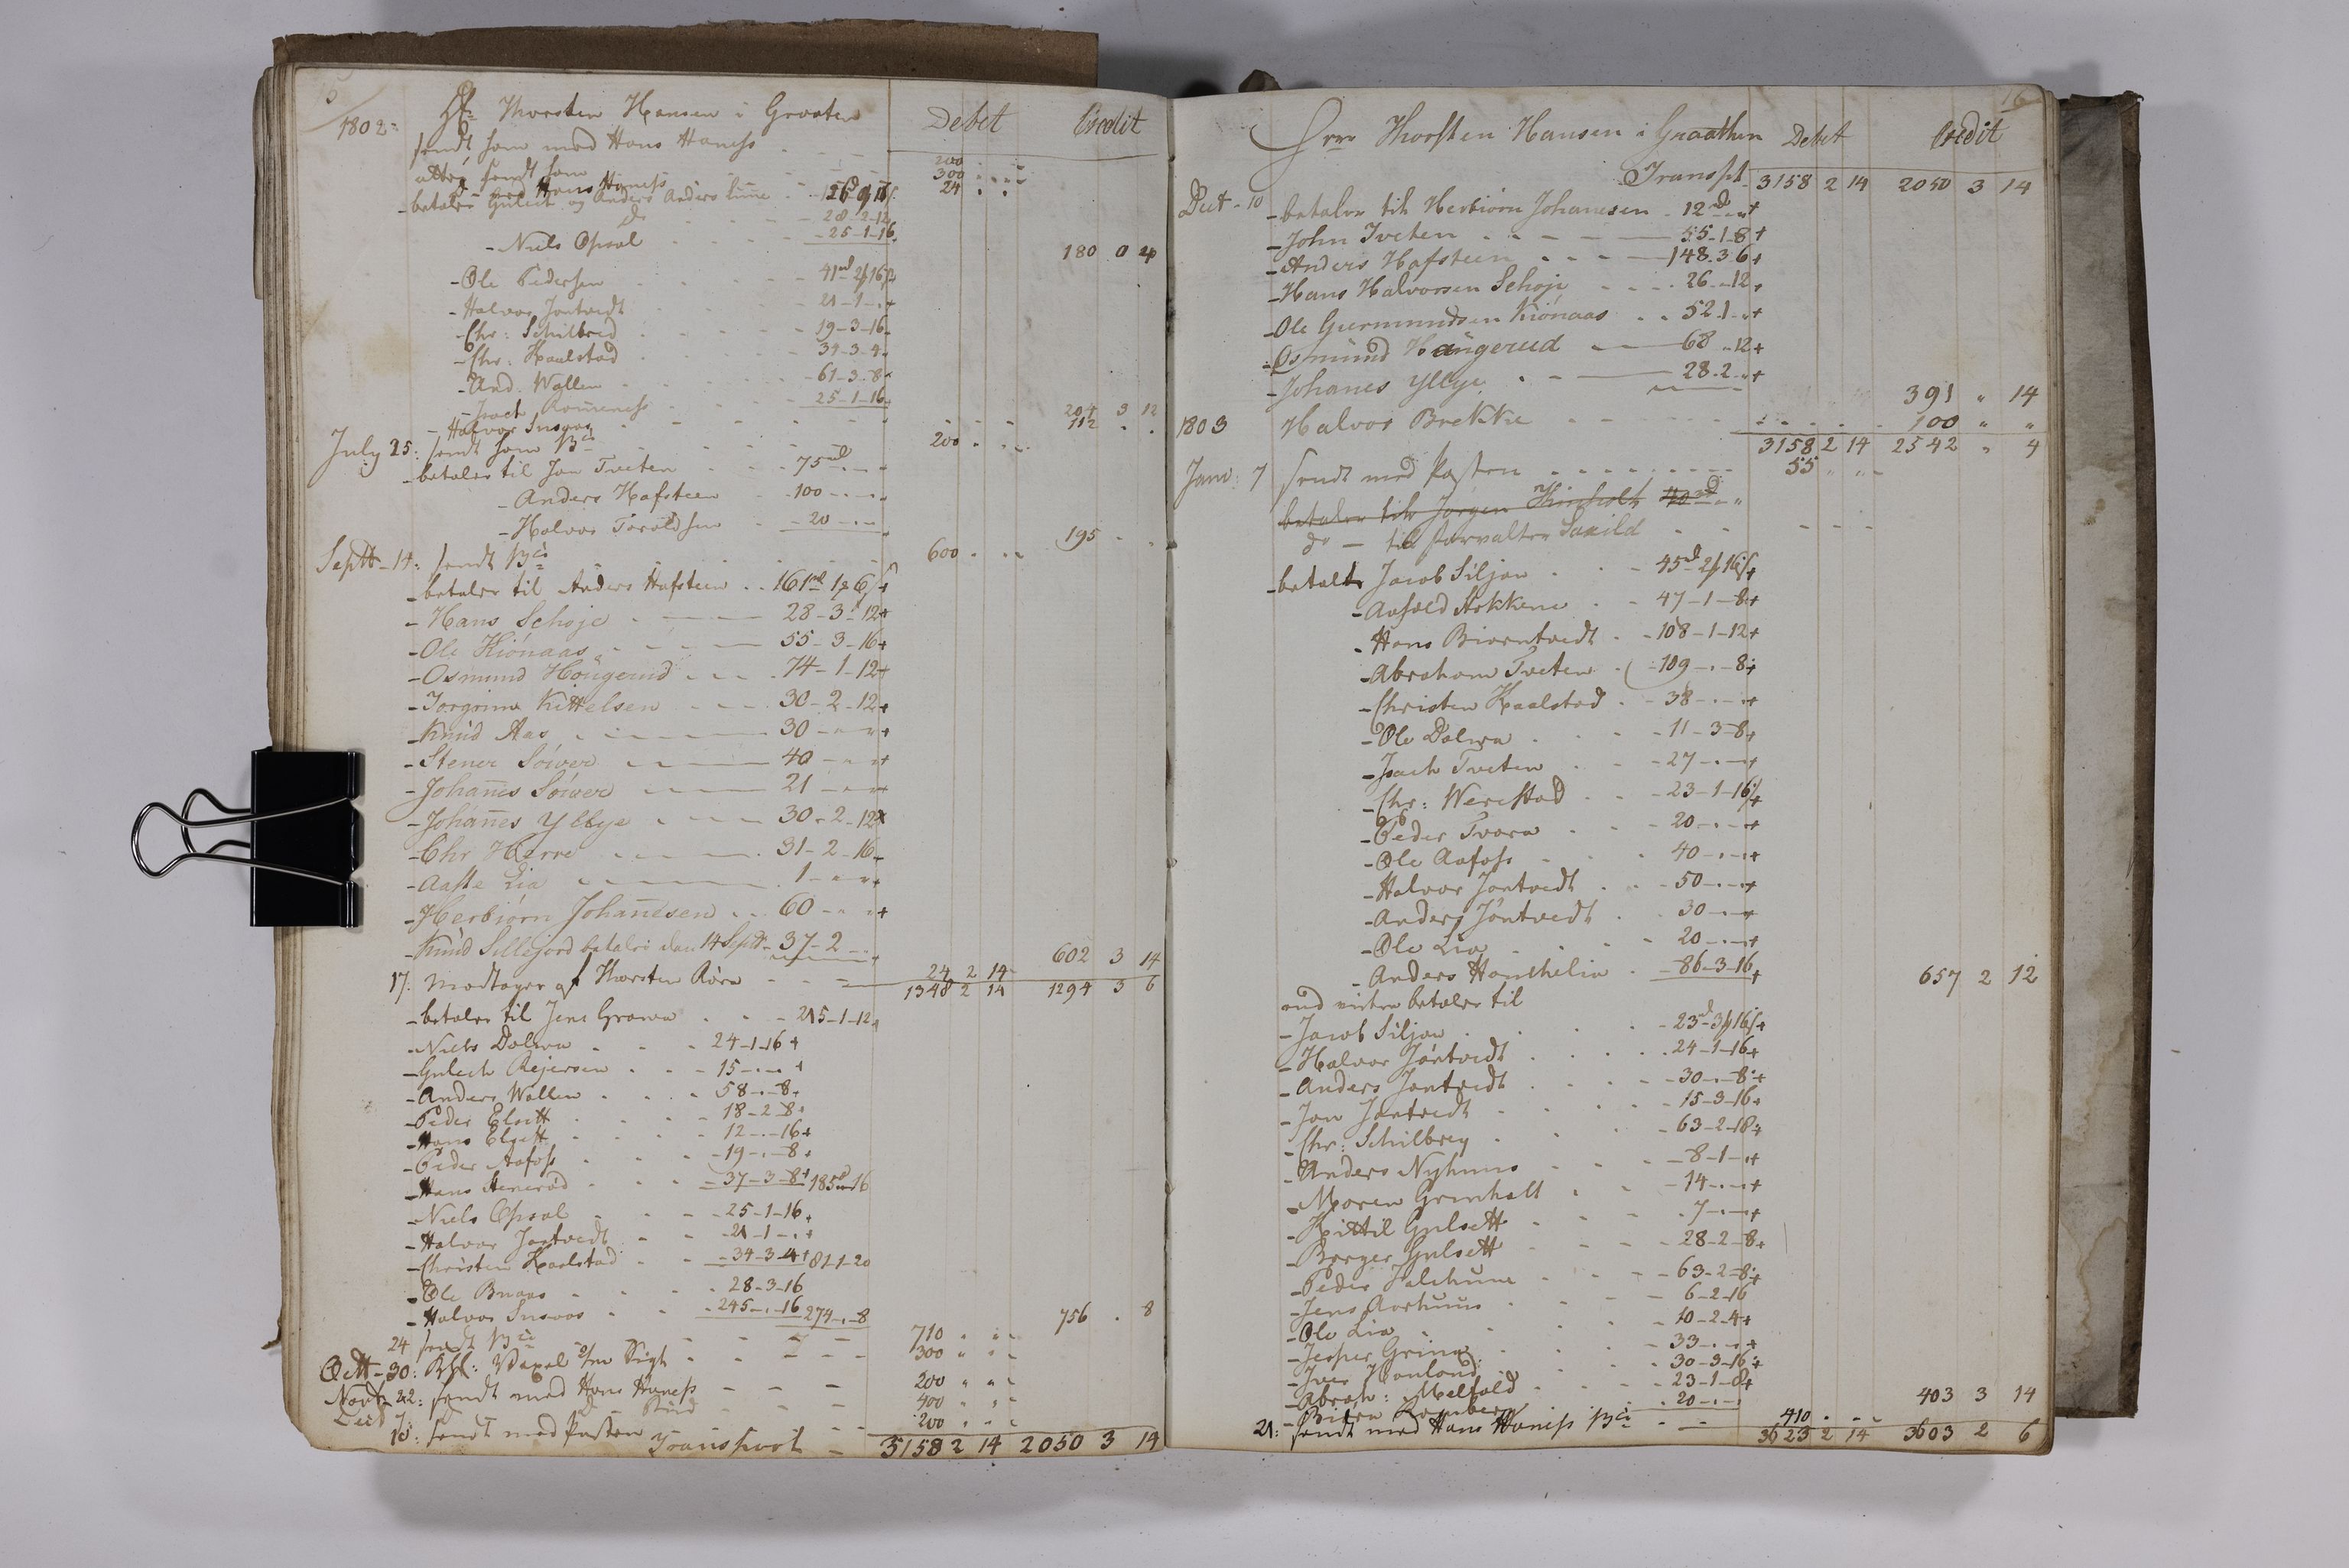 15
1802: Hr. Thorsten Hansen i Graaten Debet Credit
sendt ham med Hans Haness 200
atter sendt ham 300
med Hans Haness 24
- betaler Gulech og Anders Anderslunne
do 28-2-12
- Niels Opsal 25-1-16 180 0 20
- Ole Pedersen 41rd 2/16s
- Halvor Jontvedt 21-1-
- Chr: Schilbred 19-3-16
- Chr. Haalstad 34-3-4
- And. Wallen 61-3-8
- Isach 25-1-16 204 3 12
- Halvor Snevas 112
July 25: sendt ham 200
- betaler til Jon Tveten 75rd
- Anders Hafsteen 100
- Halvor Toroldsen 20 195
Septt-14: sendt 600
- betaler til Anders Hafsteen 161rd 1/6/+
- Hans Schoje 28-3-12+
- Ole Kiónaas 55-3-16+
- Osmund Hougerud 74-1-12+
- Jorgrime Kittelsen 30-2-12+
- Knud Aas 30
- Stener Sówer 40
- Johañes Sówer 21
- Johañes Ylbye 30-2-12
- Chr Herre 31-2-16
- Aaste Lia 1
- Herbiórn Johañesen 60 +
- Knud Sillejord betalir den 14 Septt 37-2 602 3 14
17. modtager af Thorsten Róra 24 2 14
1348 2 14 1294 3 6
- betaler til Jens Grawa 215-1-12
- Niels Dolva 24-1-16+
- Gulech Rejersen 15 +
- Anders Wallen 58-.-8
- Peder Elsett 18-2-8
- Hans Elsett 12-.-16+
- Peder Aafoss 19-.-8+
- Hans Stenerod 37-3-8+ 185-16
- Niels Opsal 25-1-16
- Halvor Jontvedt 21-1-.+
- Christen Haalstad 34-3-4+ 81-1-20
- Ole Bruaas 28-3-16
- Halvor Snevas 245-.-16 274-.-8 756 . 8
24 sendt 710
Octt-30: Vexel 2/m Sigt 300
Novb-22: sendt med Hans Haness 200
Decb 7: do Bud 400
10: sendt med Posten 200
Transport 3158 2 14 2050 3 14
16
Herr Thorsten Hansen i Graathen Debet Credit
Transpt 3158 2 14 2050 3 14
Dect-10 - betaler til Herbiorn Johannesen 12rd
- John Tveten 55-1-8+
- Anders Hafsteen 148.3 6+
- Hans Halvorsen Schoje 26-.-12
- Ole Guermundsen Kiónaas 52.1-+
- Osmund Haugerud 68.-12+
- Johanes Ylbye 28.2-+ 391 " 14
1803 Halvor Brekke 100 " "
3158 2 14 2542 " 4
Janu: 7 sendt med Posten 55
betaler til Jorgen Kinholt 40rd
do - til forvalter Saxild
- betaler Jacob Siljan 45rd 2/16/+
- Aafoeld Stokkene 47-1-8+
- Hans Biorntvedt 108-1-12+
- Abraham Tveten 109-.-8+
- Christen Haalstad 38
- Ole Dolwa 11-3-8+
- Isach Tveten 27
- Chr: Werestad 23-1-16+
- Peder Tvara 20
- Ole Aafoss 40
- Halvor Jontvedt 50
- Anders Jóntvedt 30
- Ole Lia 20
- Anders Hanchelia 86-3-16 657 2 12
end vider betaler til
- Jacob Siljan 23-3/16/+
- Halvor Jóntvedt 24-1-16+
- Anders Jontvedt 30-.-8+
- Jon Jontvedt 15-3-16+
- Chr: Schilbrey 63-2-18+
- Anders Nyhuus 8-1-.+
- Maren Grinholt 14
- Kittil Gulsett 7
- Borger Gulsett 28-2-8+
- Peder Falchum 63-2-8+
- Jens Aarhuus 6-2-16
- Ole Lia 10-2-4+
- Jesper Grina 33
- Iver Haatond 30-3-16+
- Abrah: Melfald 23-1-8+
- Biörn Romberg 20 403 3 14
21: sendt med Hans Haness 410
3623 2 14 3603 2 6